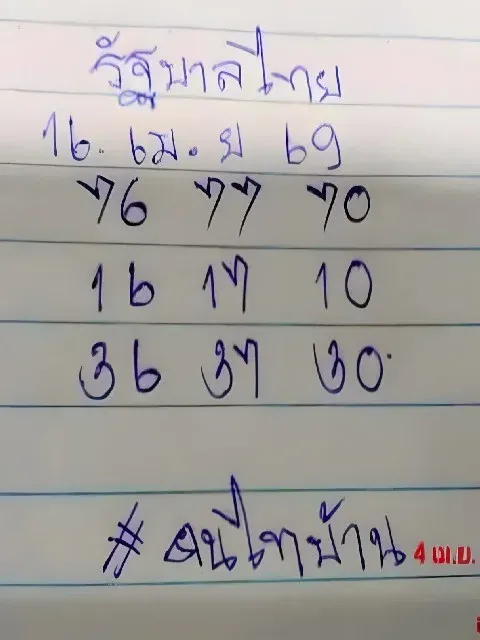 รัฐบาลไทย
16. เม.ย 69
76 77 70
16 17 10
36 37 30
#คนไทบ้าน
4 เม.ย.